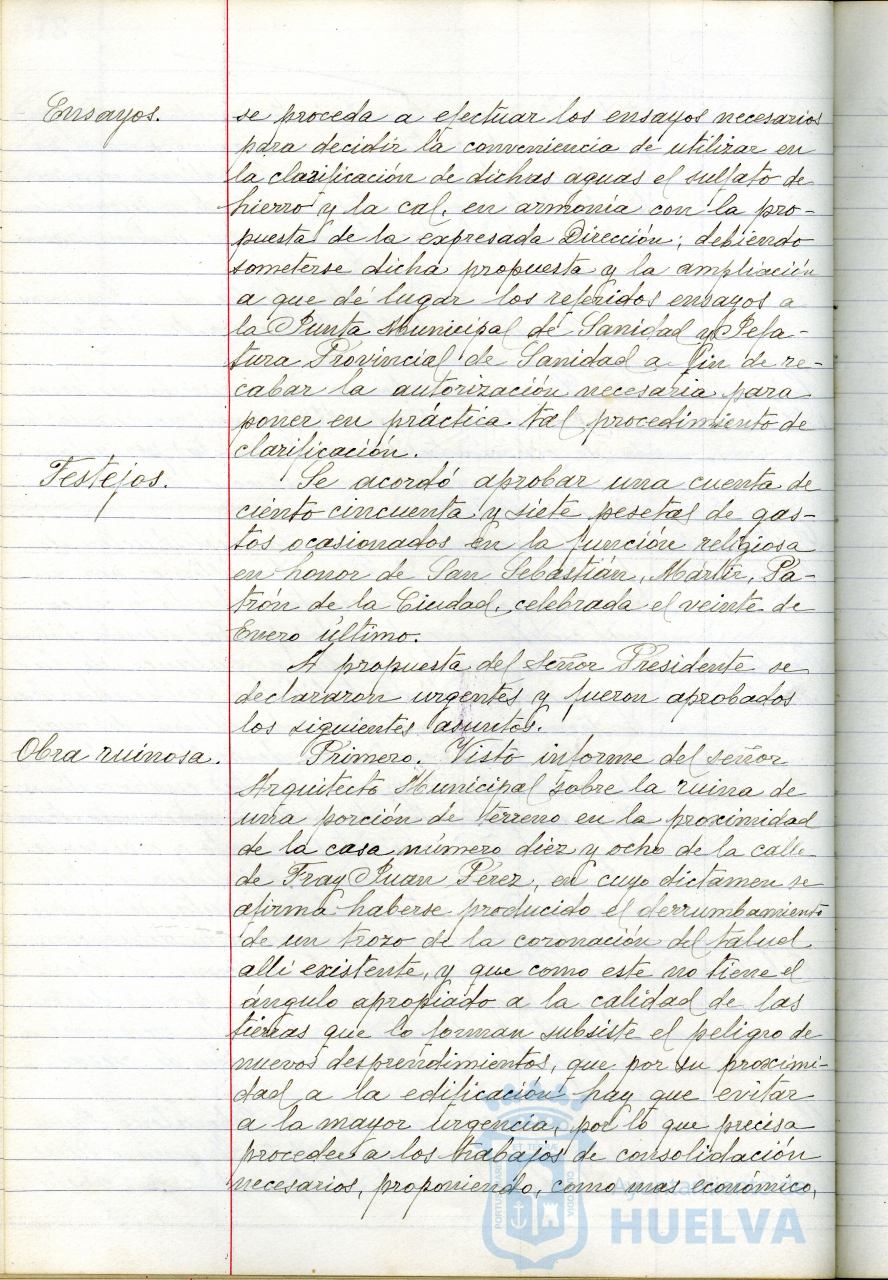 Ensayos.
se proceda a efectuar los ensayos necesarios
para decidir la conveniencia de utilizar en
la clarificación de dichas aguas el sulfato de
hierro y la cal, en armonia con la pro-
puesta de la expresada Dirección; debiendo
someterse dicha propuesta y la ampliación
a que dé lugar los referidos ensayos a
la Junta Municipal de Sanidad y Jefa-
tura Provincial de Sanidad a fin de re-
cabar la autorización necesaria para
poner en práctica tal procedimiento de
clarificación.
Festejos.
Se acordó aprobar una cuenta de
ciento cincuenta y siete pesetas de gas-
tos ocasionados en la función religiosa
en honor de San Sebastián, Mártir, Pa-
trón de la Ciudad, celebrada el veinte de
Enero último.
A propuesta del señor Presidente se
declararon urgentes y fueron aprobados
los siguientes asuntos.
Obra ruinosa.
Primero. Visto informe del señor
Arquitecto Municipal sobre la ruina de
una porción de terreno en la proximidad
de la casa número diez y ocho de la calle
de Fray Juan Pérez, en cuyo dictamen se
afirma haberse producido el derrumbamiento
de un trozo de la coronación del talud
allí existente, y que como este no tiene el
ángulo apropiado a la calidad de las
tierras que lo forman subsiste el peligro de
nuevos desprendimientos, que por su proximi-
dad a la edificación hay que evitar
a la mayor urgencia, por lo que precisa
proceder a los trabajos de consolidación
necesarios, proponiendo, como mas económico,
PORTUS MARIS ET TERRAE CUSTODIA
Ayuntamiento de
HUELVA